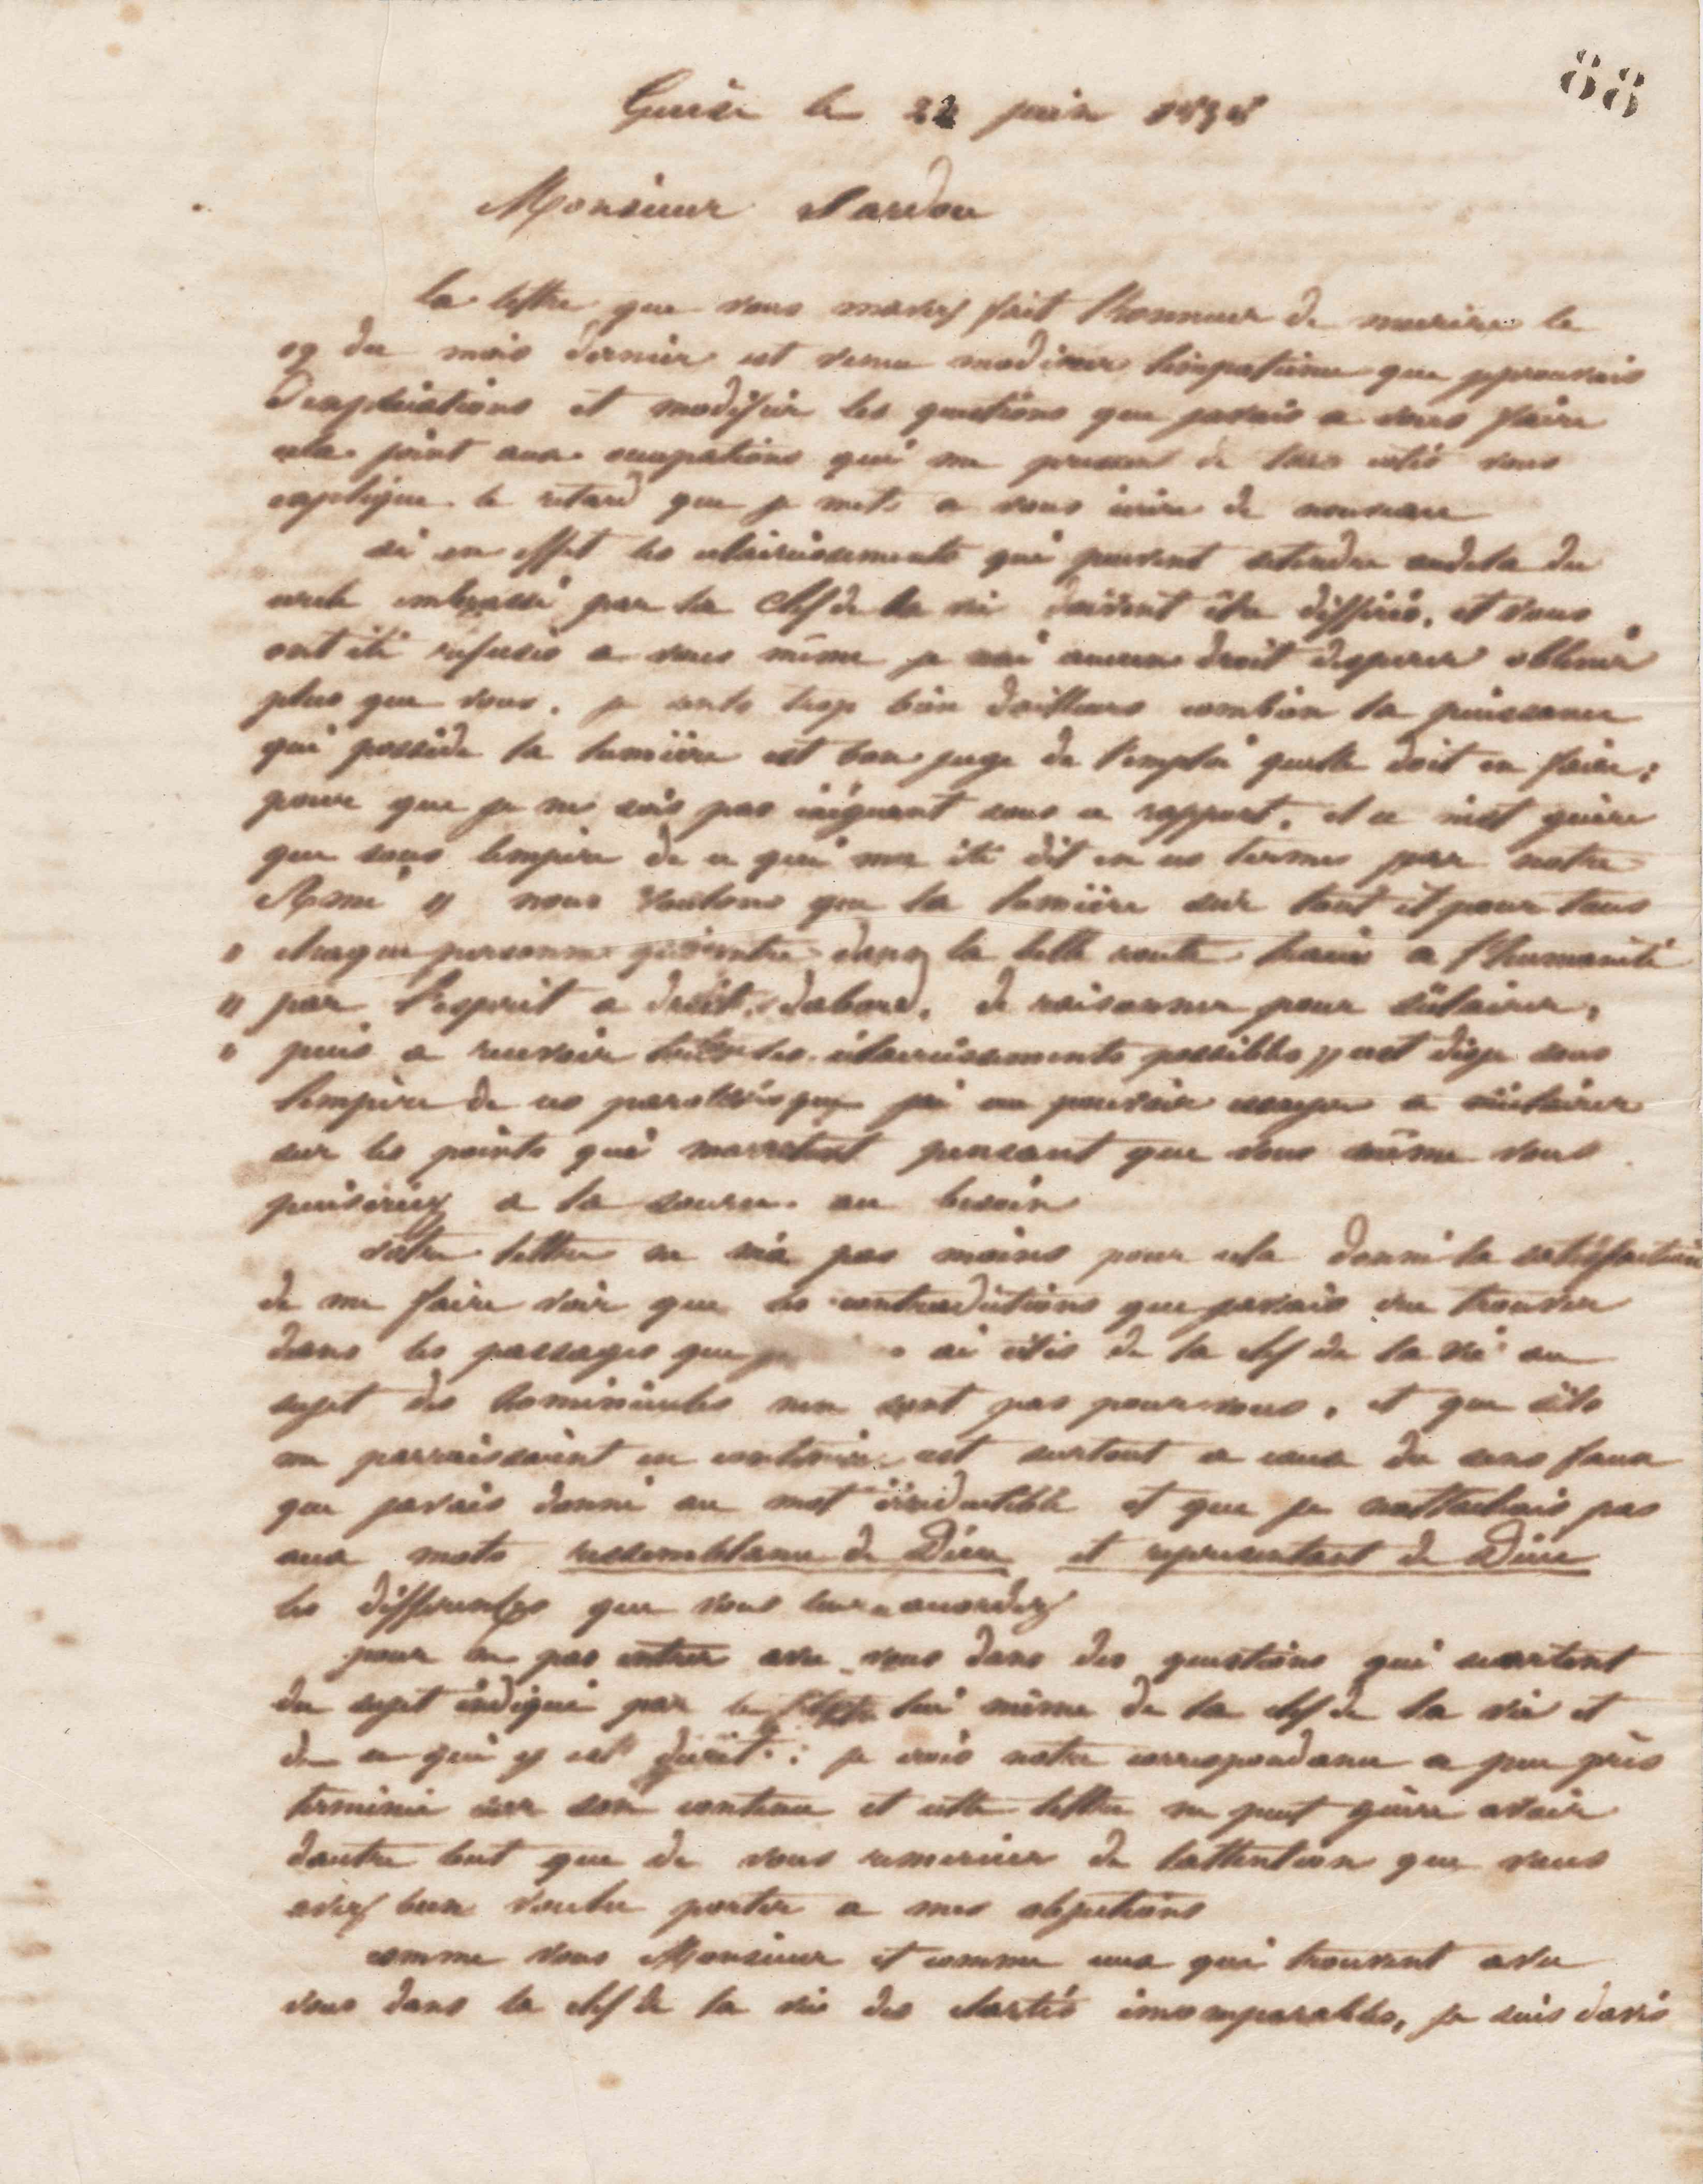 88
Guise le 22 juin 1858
Monsieur Sardou
la lettre que vous mavez fait l'honneur de mecrire le
19 du mois dernier est venu moderer limpatience que jeprouvais
Dexplications et modifier les questions que javais a vous faire
cela joint aux occupations qui me pressent de tous cotés vous
explique le retard que je mets a vous ecrire de nouveau
si en effet les eclaircissements qui peuvent setendre audela du
cercle embrassé par la Clef de la vie doivent être differés, et vous
ont été refusés a vous même je nai aucun droit desperer obtenir
plus que vous. je sents trop bien dailleurs combien la puissance
qui possède la lumière est bon juge de l'emploi quelle doit en faire;
pour que je ne sois pas exigeant sous ce rapport, et ce n'est guère
que sous lempire de ce qui ma été dit en ces termes par notre
Ami " nous voulons que la lumière sur tout et pour tous
" chaque personne qui entre dans la belle route tracée a l'humanité
" par l'esprit a droit, dabord, de raisonner pour s'éclairer,
" puis a recevoir tous les éclaircissements possibles " cest disje sous
lempire de ces paroles que jai cru pouvoir essayer a m'éclairer
sur les points qui marretent pensant que vous même vous
puiseriez a la source au besoin
votre lettre ne m'a pas moins pour cela donné la satisfaction
de me faire voir que les contradictions que javais cru trouver
dans les passages que je ai cités de la clef de la vie au
sujet des hominicules nen sont pas pour vous, et que sils
me parraissaient en contenir cest surtout a cause du sens faux
que javais donné au mot irréductible et que je nattachais pas
aux mots ressemblance de Dieu et representant de Dieu
les differentes que vous leur accordez
pour ne pas entrer avec vous dans des questions qui secartent
du sujet indiqué par le texte lui même de la clef de la vie et
de ce qui y est écrit: je crois notre correspondance a peu près
terminée sur son contenu et cette lettre ne peut guère avoir
dautre but que de vous remercier de lattention que vous
avez bien voulu porter a mes objections
comme vous Monsieur et comme ceux qui trouvent avec
vous dans la clef de la vie des clartés incomparables, je suis davis